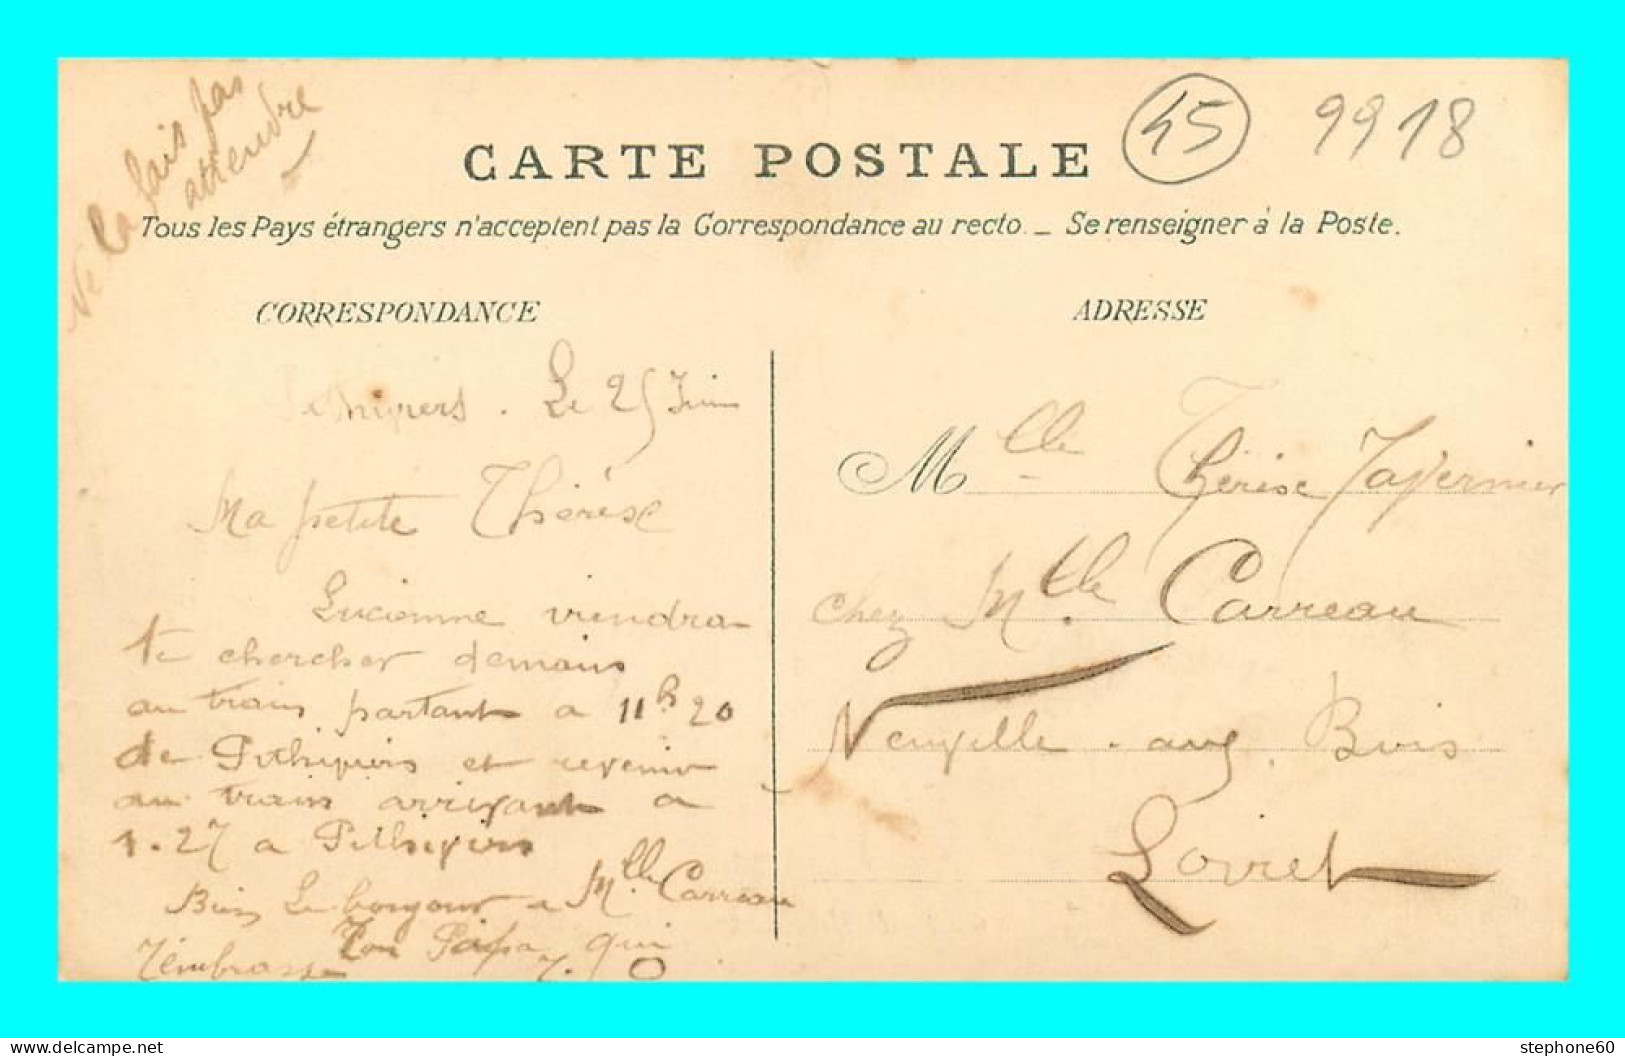 Ne la fais pas
attendre
CARTE POSTALE
45
9918
Tous les Pays étrangers n'acceptent pas la Correspondance au recto. _ Se renseigner à la Poste.
CORRESPONDANCE
Pithiviers. Le 25 Juin
Ma petite Thérèse
Lucienne viendra
te chercher demain
au train partant a 11h20
de Pithiviers et revenir
au train arrivant a
1.27 a Pithiviers
Bien le bonjour a Mlle Carreau
Ton Papa qui
t'embrasse
ADRESSE
Mlle Thérèse Tavernier
chez Mlle Carreau
Neuville aux Bois
Loiret
stephone60